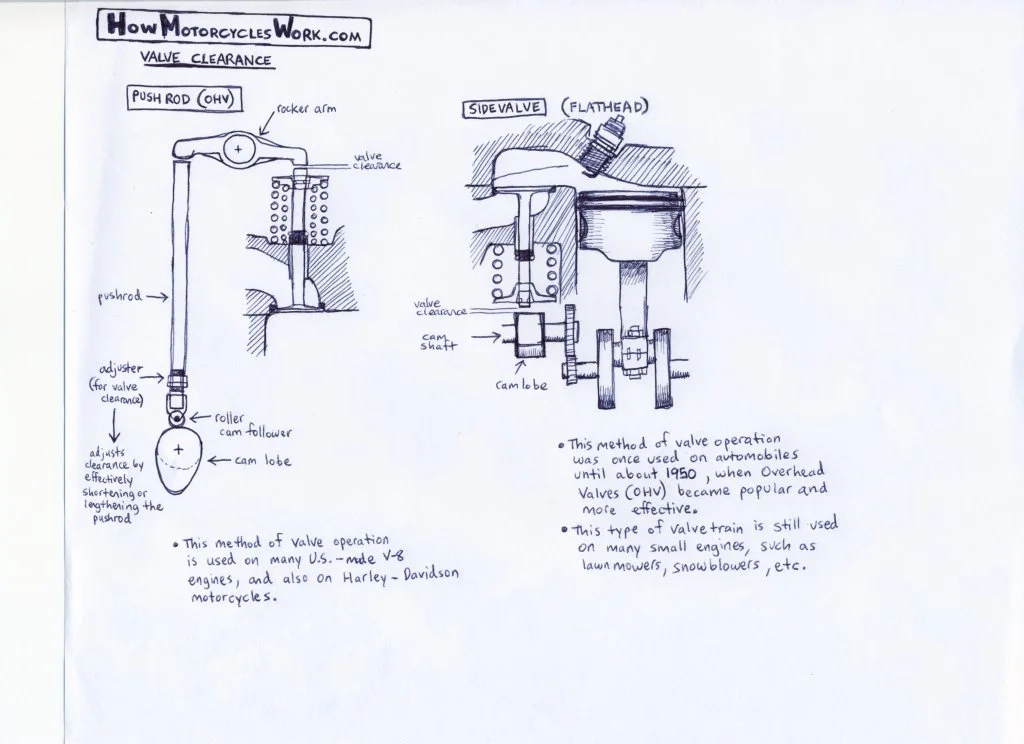 HowMotorcyclesWork.com
VALVE CLEARANCE
PUSHROD (OHV)
rocker arm
valve
clearance
pushrod
adjuster
(for valve
clearance)
adjusts
clearance by
effectively
shortening or
lengthening the
pushrod
roller
cam follower
cam lobe
• This method of valve operation
is used on many U.S.-made V-8
engines, and also on Harley-Davidson
motorcycles.
SIDEVALVE (FLATHEAD)
valve
clearance
cam
shaft
cam lobe
• This method of valve operation
was once used on automobiles
until about 1950, when Overhead
Valves (OHV) became popular and
more effective.
• This type of valvetrain is still used
on many small engines, such as
lawnmowers, snowblowers, etc.